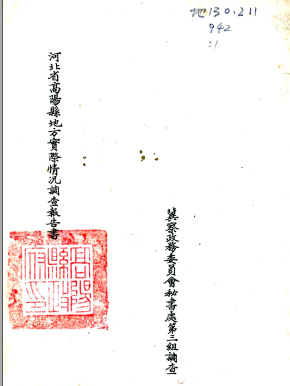 地130.211
942
:1
河北省高陽縣地方實際情況調查報告書
冀察政務委員會秘書處第三組調查
高陽縣政府印